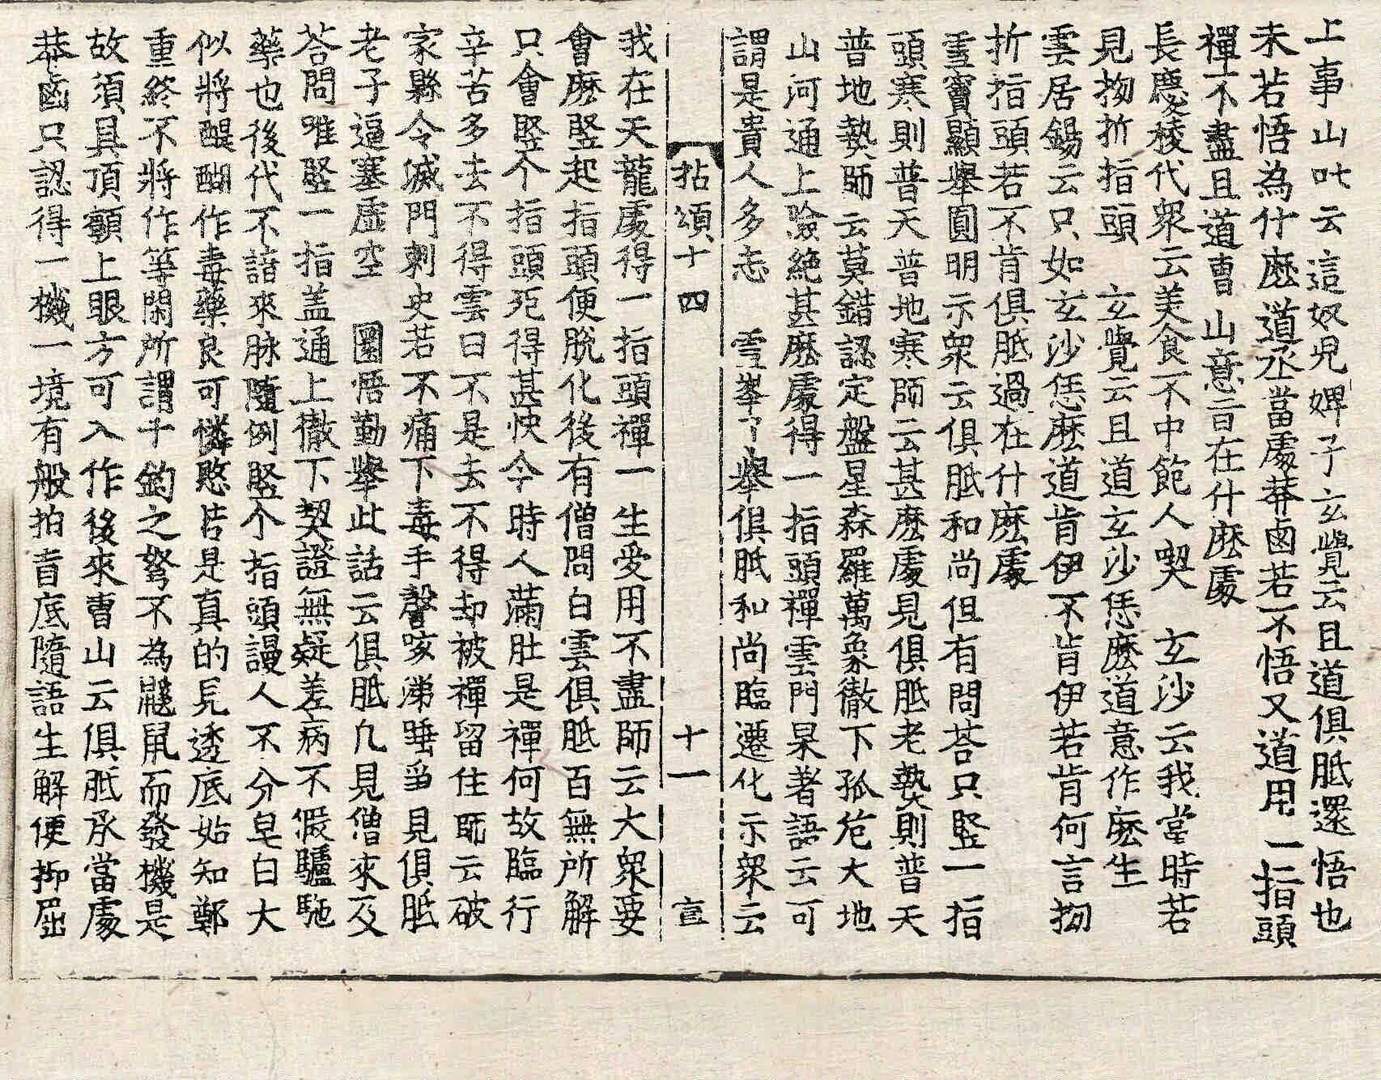 上事山吒云這奴兒婢子玄覺云且道俱胝還悟也
未若悟為什麽道承當處莽鹵若不悟又道用一指頭
禪不盡且道曹山意旨在什麽處
長慶稜代衆云美食不中飽人喫　玄沙云我當時若
見拗折指頭　玄覺云且道玄沙恁麽道意作麽生
雲居錫云只如玄沙恁麽道肯伊不肯伊若肯何言拗
折指頭若不肯俱胝過在什麽處
雪竇顯舉圓明示衆云俱胝和尚但有問荅只竪一指
頭寒則普天普地寒師云甚麽處見俱胝老𤍠則普天
普地𤍠師云莫錯認定盤星森羅萬象徹下孤危大地
山河通上險絕甚麽處得一指頭禪雲門杲著語云可
謂是貴人多忘　雪峯了舉俱胝和尚臨遷化示衆云
拈頌十四　十一　宣
我在天龍處得一指頭禪一生受用不盡師云大衆要
會麽竪起指頭便脫化後有僧問白雲俱胝百無所解
只會竪个指頭死得甚快今時人滿肚是禪何故臨行
辛苦多去不得雲曰不是去不得却被禪留住師云破
家縣令滅門刺史若不痛下毒手謦咳涕唾當見俱胝
老子逼塞虛空　圜悟勤舉此話云俱胝凡見僧來及
荅問唯竪一指盖通上徹下契證無疑差病不假驢馳
藥也後代不諳來脉隨例竪个指頭謾人不分皂白大
似將醍醐作毒藥良可憐愍若是真的見透底始知鄭
重終不將作等閑所謂千鈞之弩不為鼷鼠而發機是
故須具頂顙上眼方可入作後來曹山云俱胝承當處
莽鹵只認得一機一境有般拍盲底隨語生解便抑屈